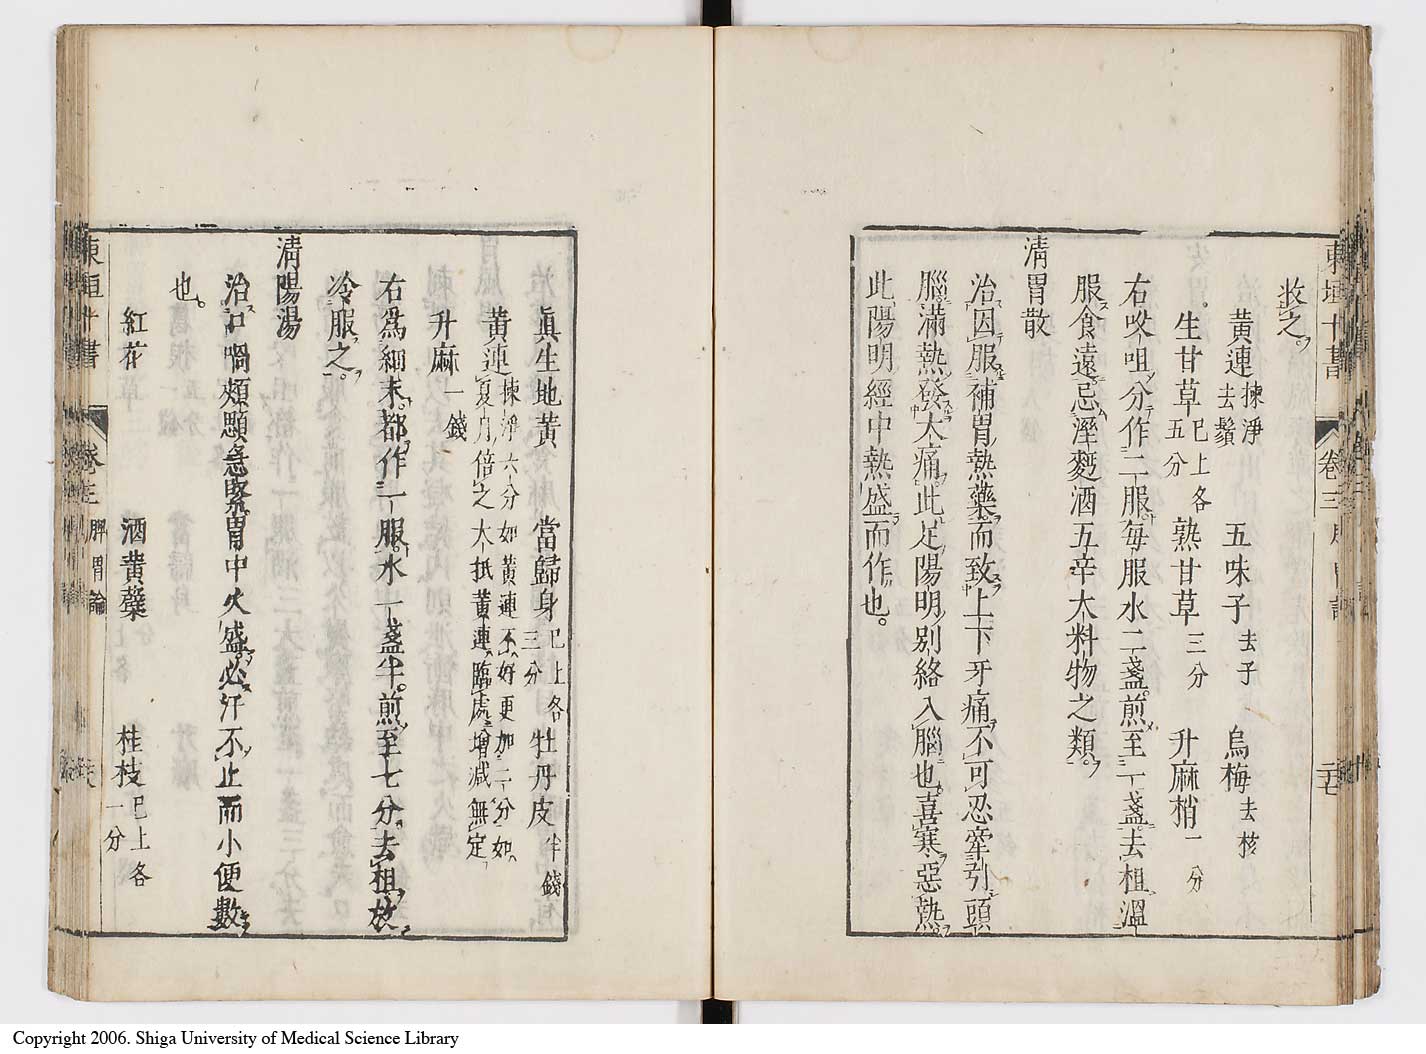 東垣十書 卷三 二十七
收之
黄連揀淨去鬚 五味子去子 烏梅去核
生甘草已上各五分 熟甘草三分 升麻梢一分
右㕮咀分作二服毎服水二盞煎至一盞去柤溫
服食遠忌溼麪酒五辛大料物之類
清胃散
治因服補胃熱藥而致上下牙痛不可忍牽引頭
腦滿熱發大痛此足陽明別絡入腦也喜寒惡熱
此陽明經中熱盛而作也
眞生地黄 當歸身已上各三分 牡丹皮半錢
黄連揀淨六分如黄連不好更加二分如夏月倍之大抵黄連臨處增減無定
升麻一錢
右爲細末都作一服水一盞半煎至七分去柤放
冷服之
清陽湯
治口喎頰顋急緊胃中火盛必汗不止而小便數
也
紅花 酒黄蘗 桂枝已上各一分
東垣十書 卷三 脾胃論
Copyright 2006. Shiga University of Medical Science Library